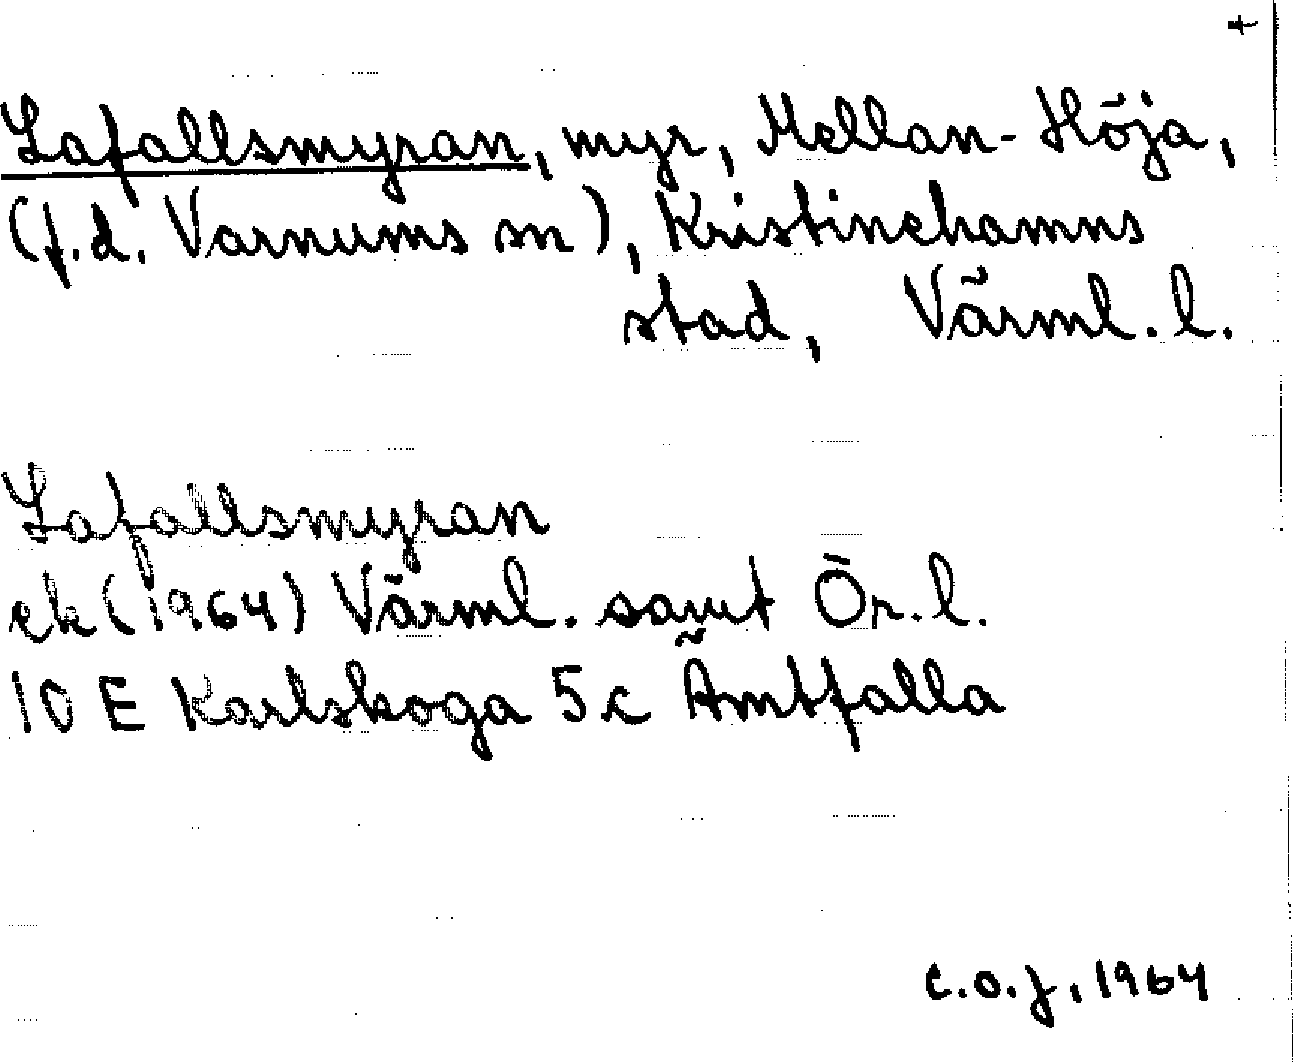 Lafallsmyran, myr, Mellan-Höja,
(f.d. Varnums sn), Kristinehamns
stad, Värml. l.
Lafallsmyran
ek (1964) Värml. samt Ör. l.
10 E Karlskoga 5 c Ämtfalla
C.O.J. 1964